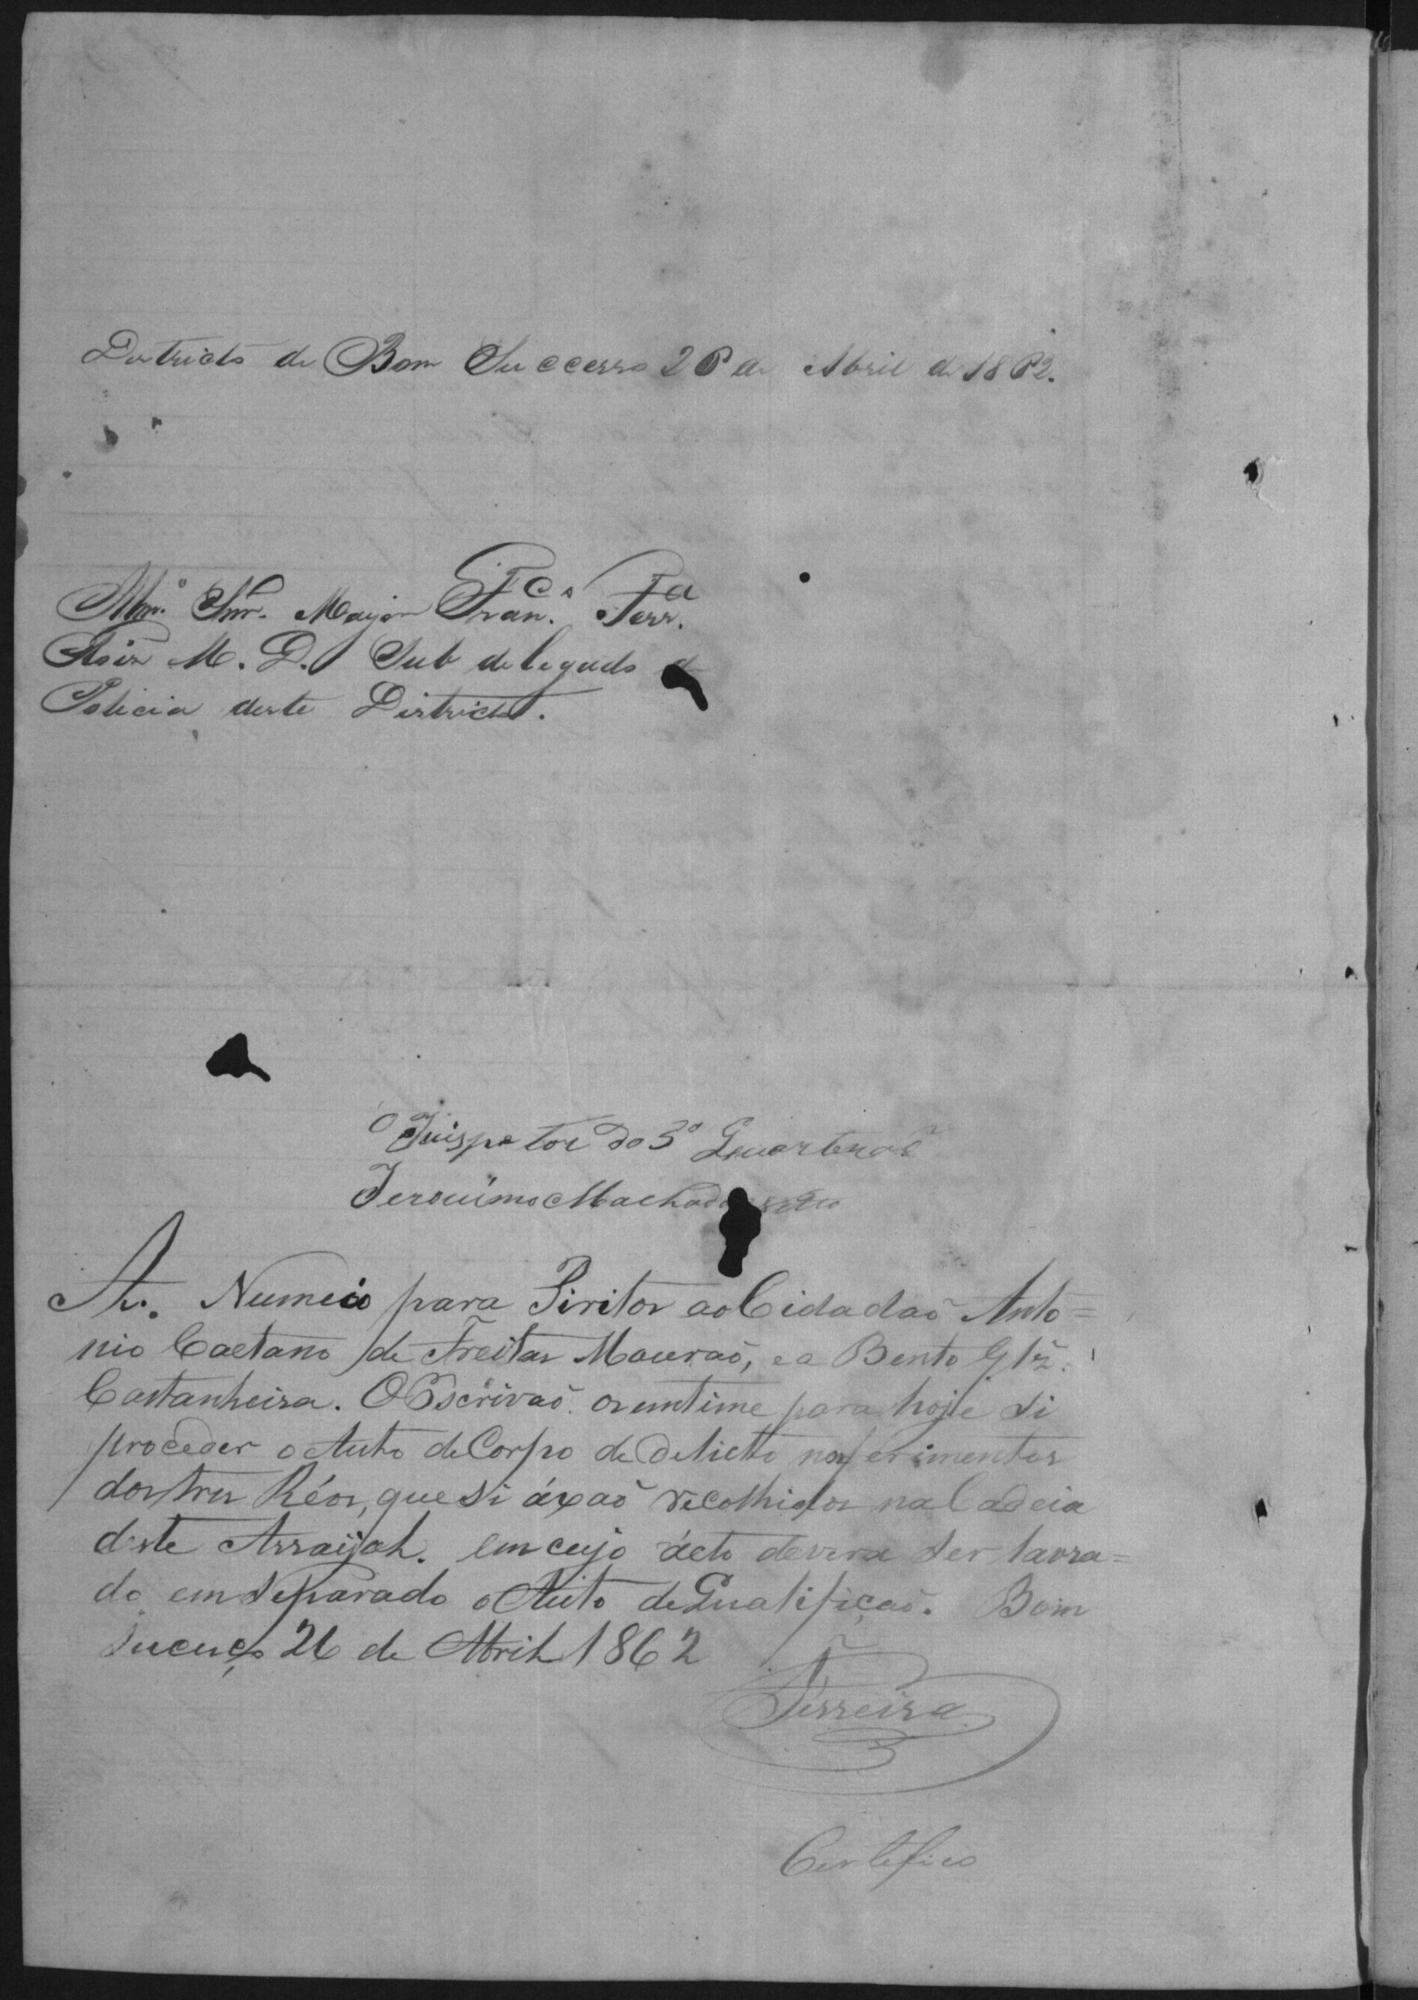 Districto de Bom Successo 26 de Abril de 1862.
Illmº. Snr. Major Franco. Ferra.
M. D. Sub delegado d
Policia deste Districto.
O Inispetor do 3º Quarteraõ
Jeronimo Machado
Au. Numeio para Piritos ao Cidadaõ Anto=
nio Caetano de Freitas Mouraõ, e a Bento Glz.
Castanheira. O Escrivaõ os entime para hoje si
proceder o Auto de Corpo de delicto nos ferimentos
dos tres Réos, que si áxaõ recolhidos na Cadeia
deste Arraijal. em cujo ácto devera ser lavra=
do em separado o Auto de Qualifiçaõ. Bom
Sucenço 26 de Abril 1862
Ferreira
Certefico